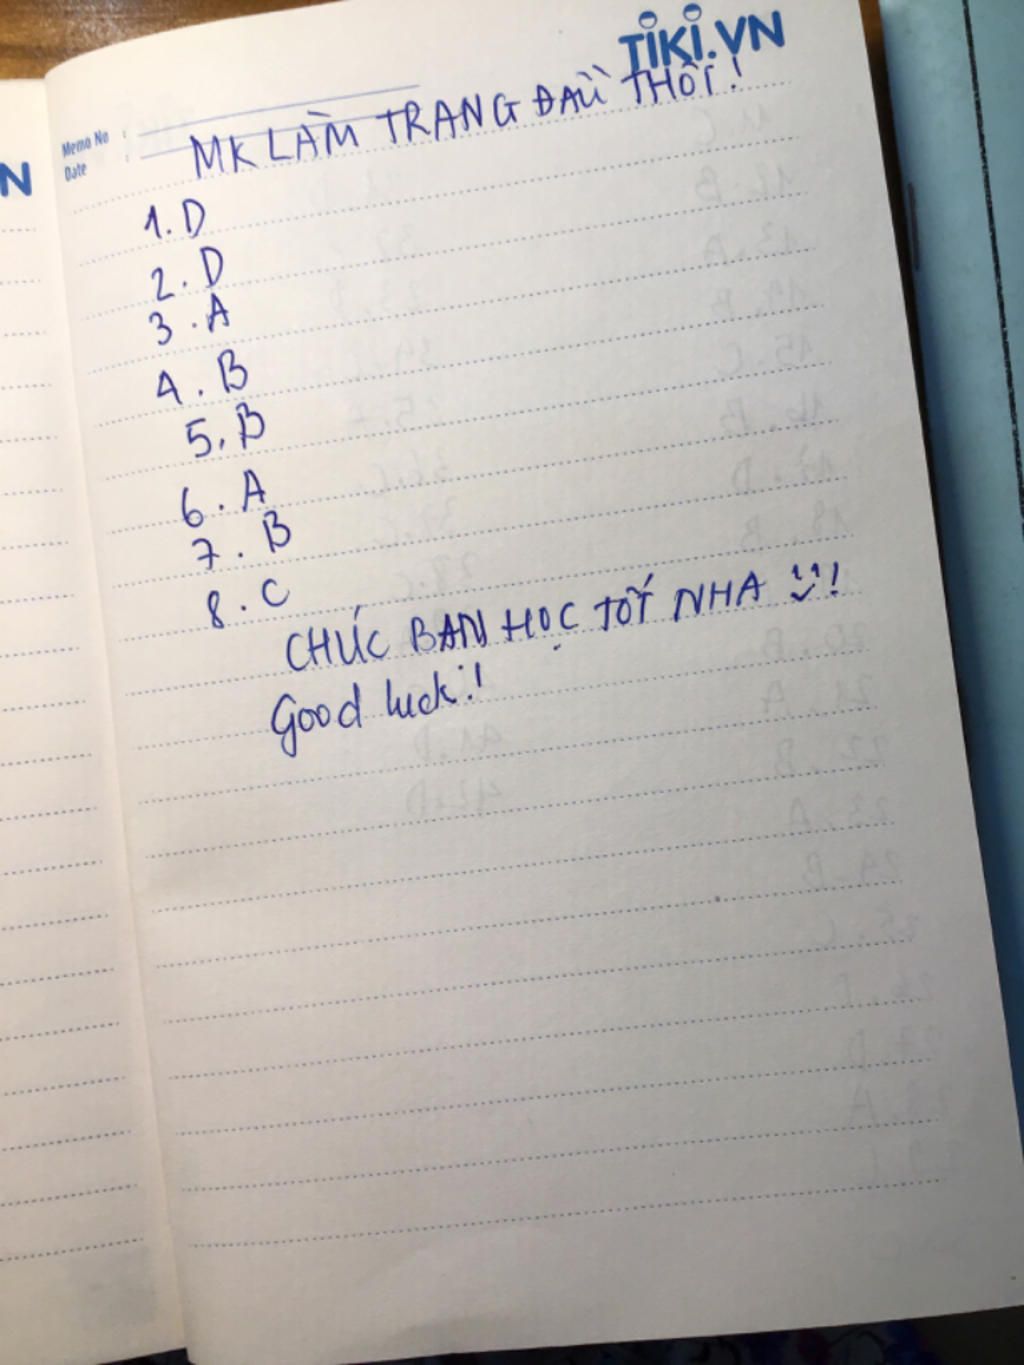 TIKI.VN
N
Memo No :
Date :
MK LÀM TRANG ĐẦU THÔI!
1. D
2. D
3. A
4. B
5. B
6. A
7. B
8. C
CHÚC BẠN HỌC TỐT NHA !
Good luck!